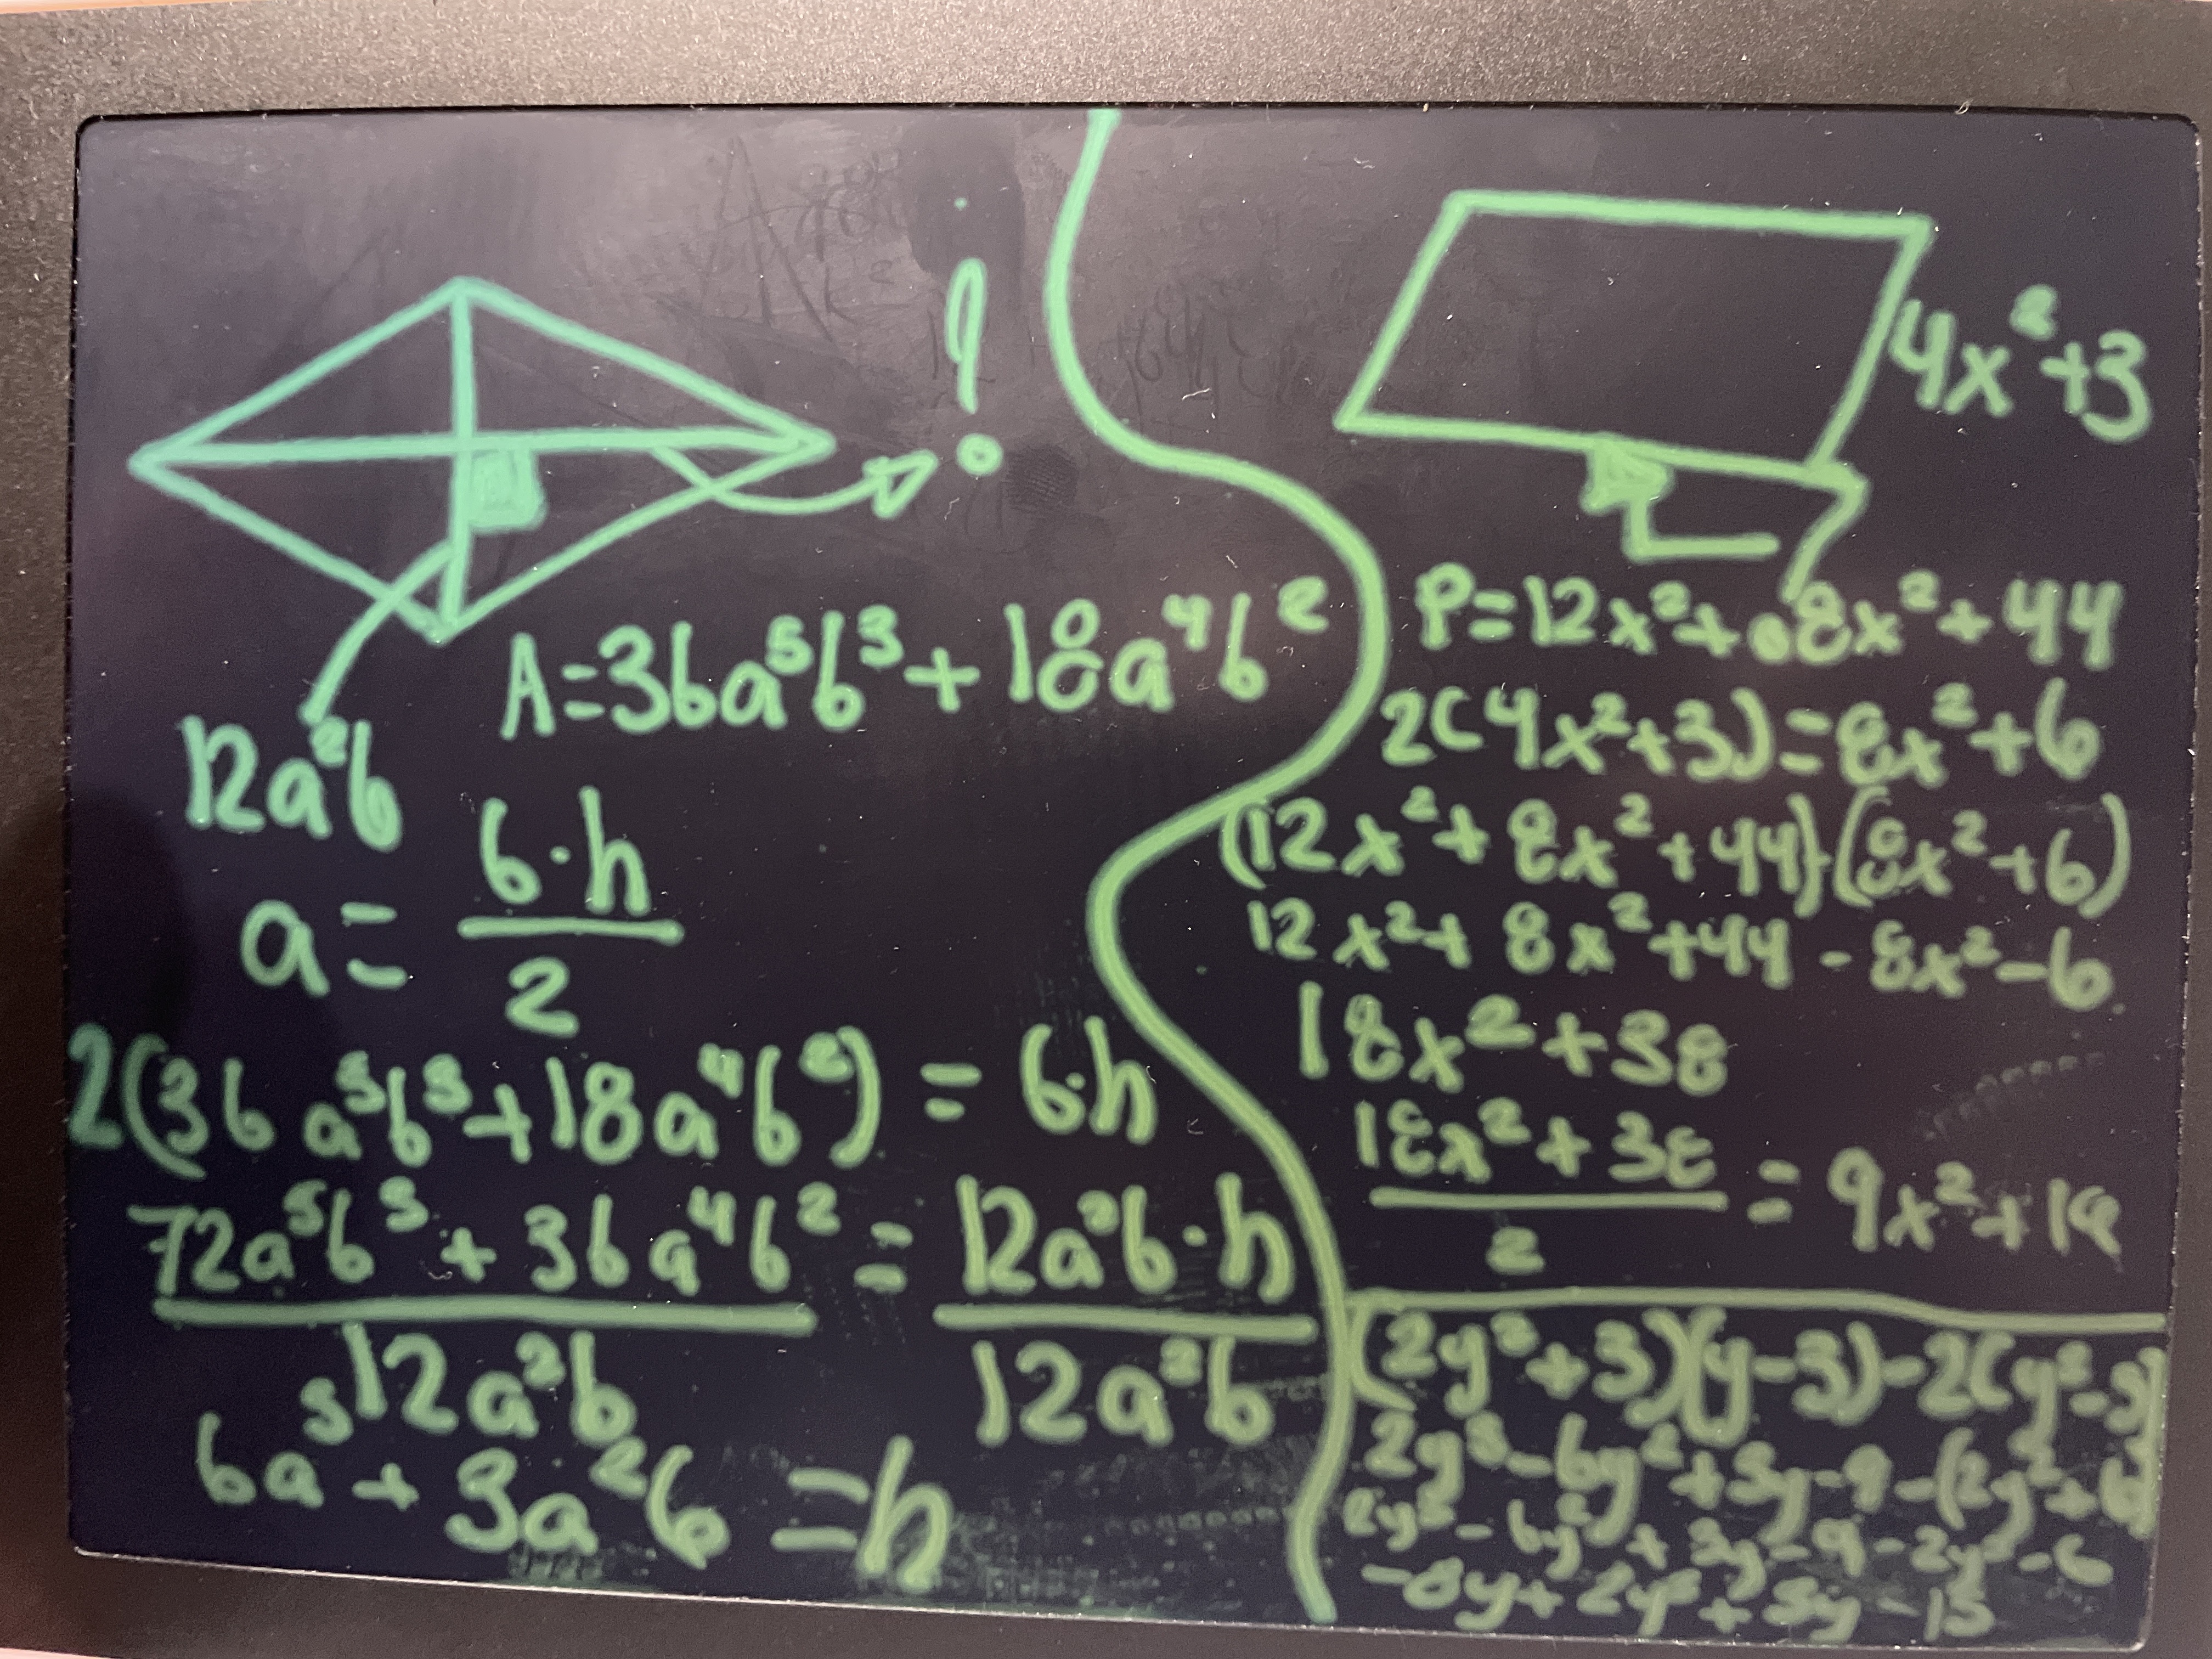 ?
A=36a⁵b³+18a⁴b²
12a²b
a= b·h / 2
2(36a⁵b³+18a⁴b²) = b·h
72a⁵b³ + 36a⁴b² / 12a²b = 12a²b·h / 12a²b
6a³b² + 3a²b = h
4x²+3
P=12x²+8x²+44
2(4x²+3)=8x²+6
(12x²+8x²+44)-(8x²+6)
12x²+8x²+44-8x²-6
18x²+38
18x²+38 / 2 = 9x²+19
(2y²+3)(y-3)-2(y²-3)
2y³-6y²+3y-9-(2y²+6)
2y³-6y²+3y-9-2y²-6
-8y+2y³+3y-15